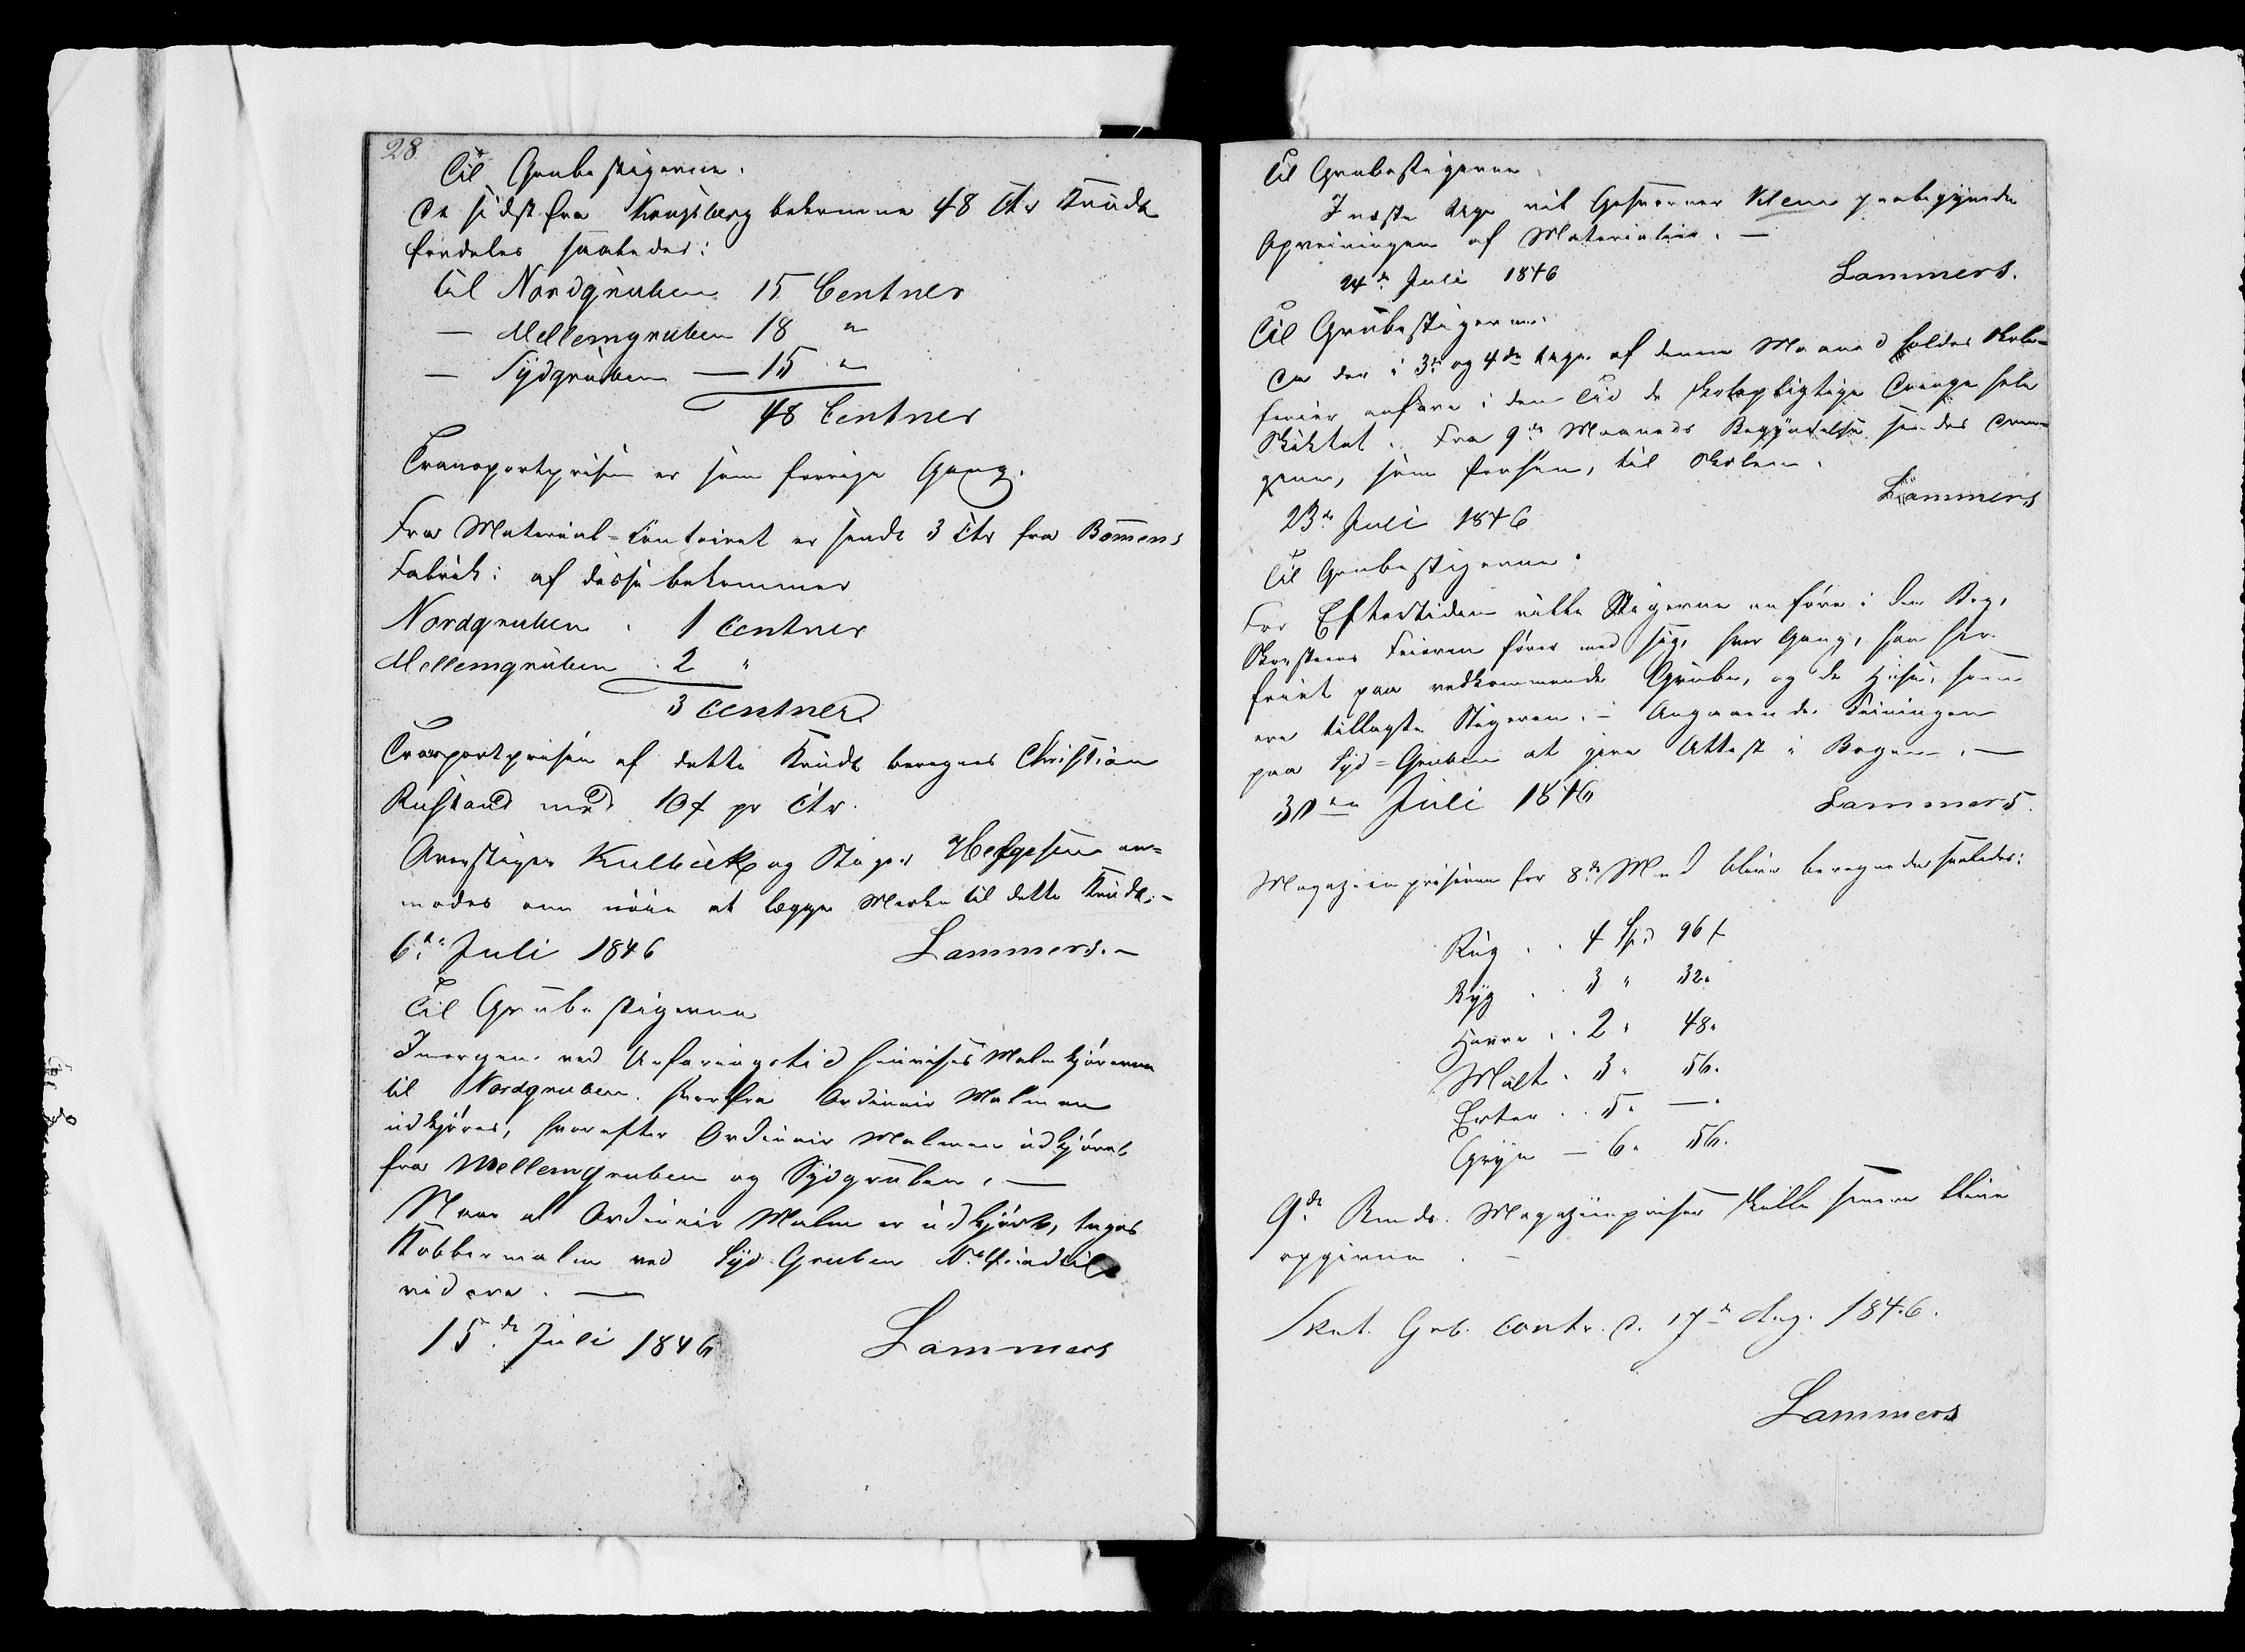 28
Til Grubestigerne.
De sidst fra Kongsberg bekomne 48 Ctr Krudt
fordeles saaledes:
til Nordgruben 15 Centner
— Mellemgruben 18 "
— Sydgruben — 15 "
48 Centner
Transportprisen er som forrige Gang.
Fra Material-Contoiret er sendt 3 Ctr fra Bömens
Fabrik: af disse bekommer
Nordgruben . 1 Centner
Mellemgruben . 2 "
3 Centner
Transportprisen af dette Krudt beregnes Christian
Rustand med 10 ß pr Ctr.
Overstiger Kulbeck og Stiger Helgesen an-
modes om nöie at lægge Mærke til dette Krudt.-
6te Juli 1846 Lammers.-
Til Grubestigerne
Imorgen ved Anfaringstid henvises Malmkjörerne
til Nordgruben hvorfra Ordinair Malmen
udkjöres, hvorefter Ordinair Malmen udkjöres
fra Mellemgruben og Sydgruben. —
Naar al Ordinair Malm er udkjört, tages
Kobbermalm ved Syd-Gruben indtil
videre. —
15de Juli 1846 Lammers
Til Grubestigerne
I næste Uge vil Gesvorner Klem paabegynde
Opveiningen af Materialier. —
24de Juli 1846 Lammers.
Til Grubestigerne.
Da der i 3die og 4de Uge af denne Maaned holdes Skole-
ferier anfare i den Tid de skolepligtige Drenge hele
Skiktet. Fra 9de Maaneds Begyndelse sendes Dren-
gene, som forhen, til Skolen.
23de Juli 1846 Lammers
Til Grubestigerne.
For Eftertiden ville Stigerne anföre i den Bog,
Skorstens Feieren förer med sig, hver Gang, han har
feiet paa vedkommende Grube, og de Huse, som
ere tillagte Stigeren. - Angaaende Feiningen
paa Syd-Gruben at give Attest i Bogen. —
30te Juli 1846 Lammers.
Magaziinpriserne for 8de Md blive beregnede saaledes:
Rug . . 4 Spd 96 ß
Byg . . 3 " 32 "
Havre . . 2 " 48 "
Malt . 3 " 56 "
Erter . . 5 " — "
Gryn — 6 " 56 "
9de Mnds. Magaziinpriser skulle senere blive
opgivne . -
Grb. Contr. d. 17de Aug. 1846.
Lammers